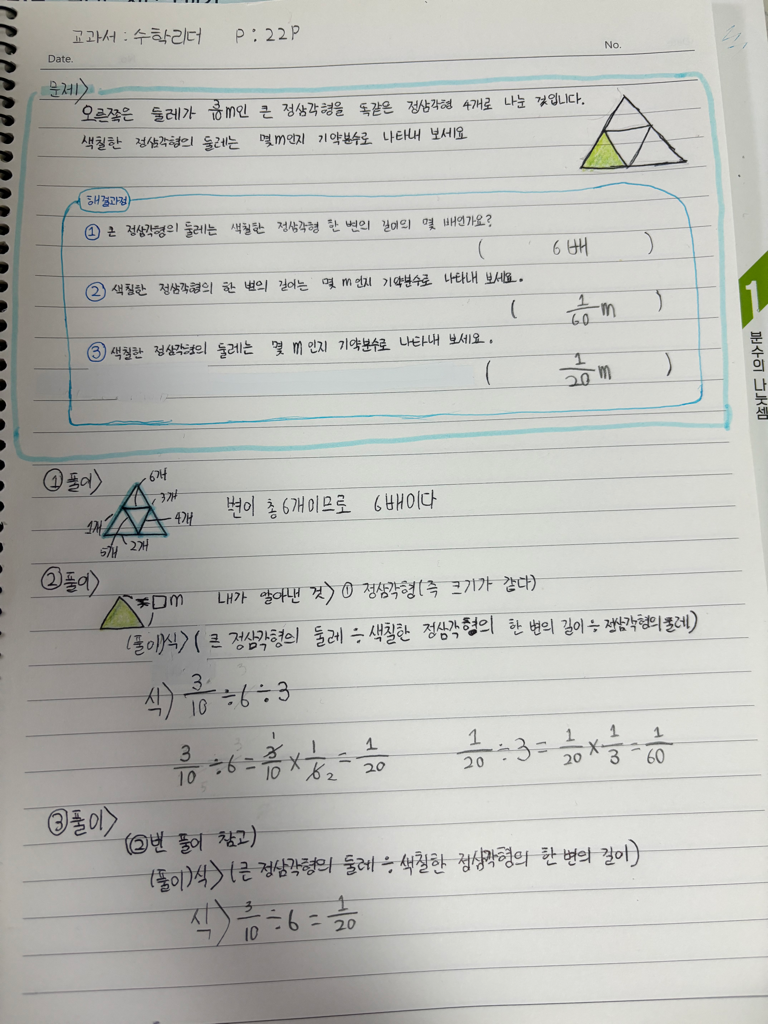 교과서 : 수학리더 P : 22P
Date.
No.
문제1>
오른쪽은 둘레가 3/10 m인 큰 정삼각형을 똑같은 정삼각형 4개로 나눈 것입니다.
색칠한 정삼각형의 둘레는 몇 m인지 기약분수로 나타내 보세요
해결과정
① 큰 정삼각형의 둘레는 색칠한 정삼각형 한 변의 길이의 몇 배인가요?
( 6배 )
② 색칠한 정삼각형의 한 변의 길이는 몇 m인지 기약분수로 나타내 보세요.
( 1/60 m )
③ 색칠한 정삼각형의 둘레는 몇 m인지 기약분수로 나타내 보세요.
( 1/20 m )
1
분수의 나눗셈
①풀이>
6개
3개
1개
4개
5개
2개
변이 총 6개이므로 6배이다
②풀이>
□m 내가 알아낸 것> ① 정삼각형(즉 크기가 같다)
(풀이)식> (큰 정삼각형의 둘레 ÷ 색칠한 정삼각형의 한 변의 길이 ÷ 정삼각형의 둘레)
식> 3/10 ÷ 6 ÷ 3
3/10 ÷ 6 = 3/10 × 1/6 = 1/20 1/20 ÷ 3 = 1/20 × 1/3 = 1/60
1
2
③풀이>
(②번 풀이 참고)
(풀이)식> (큰 정삼각형의 둘레 ÷ 색칠한 정삼각형의 한 변의 길이)
식> 3/10 ÷ 6 = 1/20